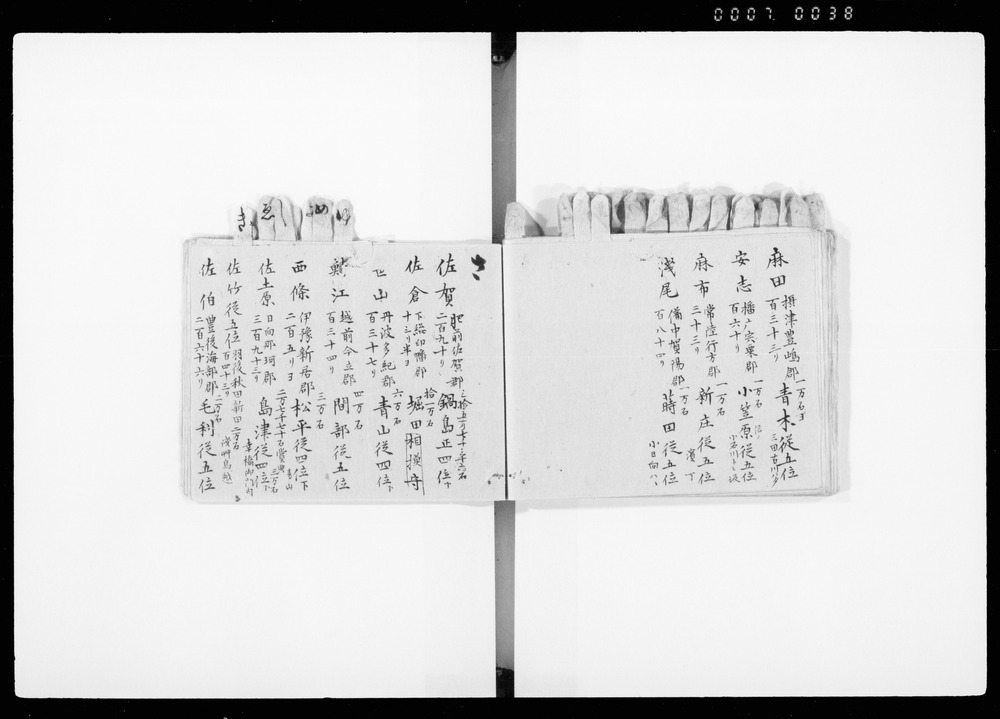 0007 0038
麻田 摂津豊嶋郡 一万石ヨ 青木従五位
百三十三リ
安志 播广宍粟郡 一万石 小笠原従五位
百六十リ
麻布 常陸行方郡 一万石 新庄従五位
三十三リ
浅尾 備中賀陽郡 一万石 蒔田従五位
百八十四リ 小日向
さ
佐賀 肥前佐賀郡 鍋島正四位下
二百九十リ
佐倉 下総印幡郡 拾一万石 堀田相摸守
十三リ半ヨ
山 丹波多紀郡 六万石 青山従四位下
百三十七リ
鯖江 越前今立郡 四万石 間部従五位
百三十四リ
西條 伊豫新居郡 三万石 松平従四位下
二百五リヨ 青山
佐土原 日向那珂郡 二万七千七十石 賞典三万石 島津従四位下
三百九十三リ 幸橋御門内
佐竹従五位 羽後秋田新田二万石 浅艸鳥越
百四十三リ
佐伯 豊後海部郡 二万石 毛利従五位
二百六十六リ
き
ゑ
し
め
ゆ